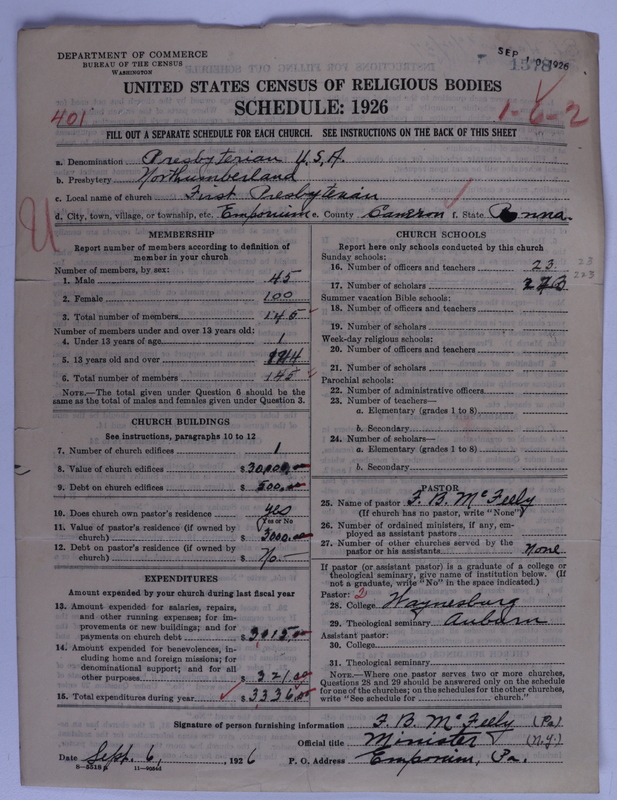 DEPARTMENT OF COMMERCE
BUREAU OF THE CENSUS
WASHINGTON
SEP 1926
1578
UNITED STATES CENSUS OF RELIGIOUS BODIES
SCHEDULE: 1926
401
1-6-2
FILL OUT A SEPARATE SCHEDULE FOR EACH CHURCH. SEE INSTRUCTIONS ON THE BACK OF THIS SHEET
a. Denomination Presbyterian U.S.A.
b. Presbytery Northumberland
c. Local name of church First Presbyterian
d. City, town, village, or township, etc. Emporium e. County Cameron f. State Penna.
MEMBERSHIP
Report number of members according to definition of
member in your church
Number of members, by sex:
1. Male 45
2. Female 100
3. Total number of members 145
Number of members under and over 13 years old:
4. Under 13 years of age 1
5. 13 years old and over 144
6. Total number of members 145
NOTE.—The total given under Question 6 should be the
same as the total of males and females given under Question 3.
CHURCH BUILDINGS
See instructions, paragraphs 10 to 12
7. Number of church edifices 1
8. Value of church edifices $30,000.00
9. Debt on church edifices $500.00
10. Does church own pastor's residence yes
Yes or No
11. Value of pastor's residence (if owned by
church) $3000.00
12. Debt on pastor's residence (if owned by
church) $No.—
EXPENDITURES
Amount expended by your church during last fiscal year
13. Amount expended for salaries, repairs,
and other running expenses; for im-
provements or new buildings; and for
payments on church debt $3015.00
14. Amount expended for benevolences, in-
cluding home and foreign missions; for
denominational support; and for all
other purposes $321.00
15. Total expenditures during year $3336.00
CHURCH SCHOOLS
Report here only schools conducted by this church
Sunday schools:
16. Number of officers and teachers 23
23
17. Number of scholars
223
Summer vacation Bible schools:
18. Number of officers and teachers
19. Number of scholars
Week-day religious schools:
20. Number of officers and teachers
21. Number of scholars
Parochial schools:
22. Number of administrative officers
23. Number of teachers—
a. Elementary (grades 1 to 8)
b. Secondary
24. Number of scholars—
a. Elementary (grades 1 to 8)
b. Secondary
PASTOR
25. Name of pastor F. B. McFeely
(If church has no pastor, write "None")
26. Number of ordained ministers, if any, em-
ployed as assistant pastors
27. Number of other churches served by the
pastor or his assistants None
If pastor (or assistant pastor) is a graduate of a college or
theological seminary, give name of institution below. (If
not a graduate, write "No" in the space indicated.)
Pastor: 2
28. College Waynesburg
29. Theological seminary Auburn
Assistant pastor:
30. College
31. Theological seminary
NOTE.—Where one pastor serves two or more churches,
Questions 28 and 29 should be answered only on the schedule
for one of the churches; on the schedules for the other churches,
write "See schedule for church."
Signature of person furnishing information F. B. McFeely (Pa)
Official title Minister (N.Y.)
Date Sept. 6, 1926 P. O. Address Emporium, Pa.